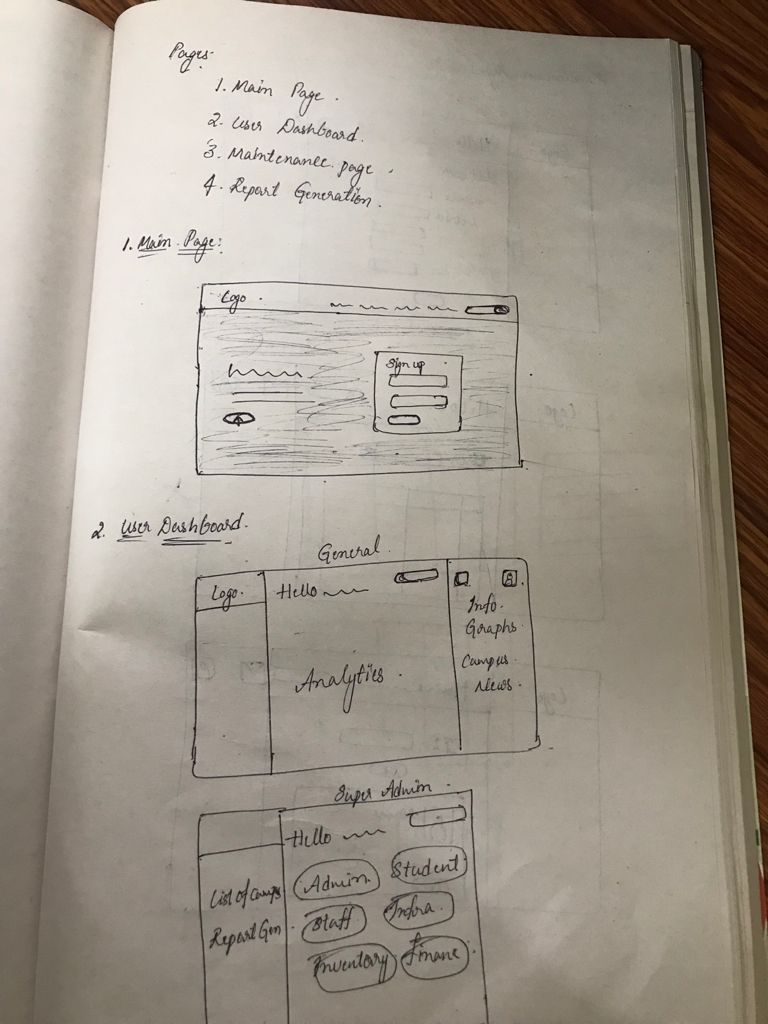 Pages.
1. Main Page.
2. User Dashboard.
3. Maintenance page.
4. Report Generation.
1. Main Page:
Logo.
Sign up
2. User Dashboard.
General
Logo.
Hello
Info.
Graphs.
Campus.
News.
Analytics.
Super Admin.
Hello
Admin.
Student
List of Camps
Staff
Infra.
Report Gen.
Inventory
Finance